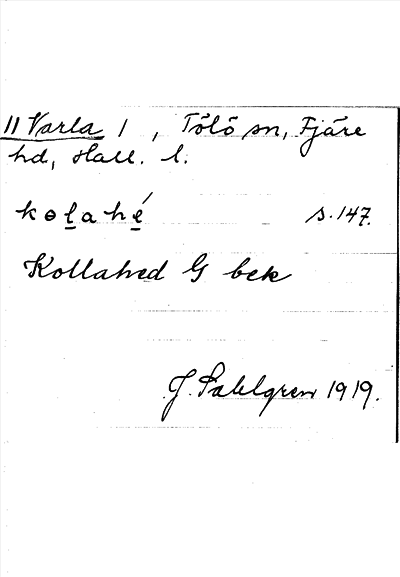 11 Varla 1 , Tölö sn, Fjäre
hd, Hall. l.
kɵlahé s. 147.
Kollahed G bek
J. Sahlgren 1919.